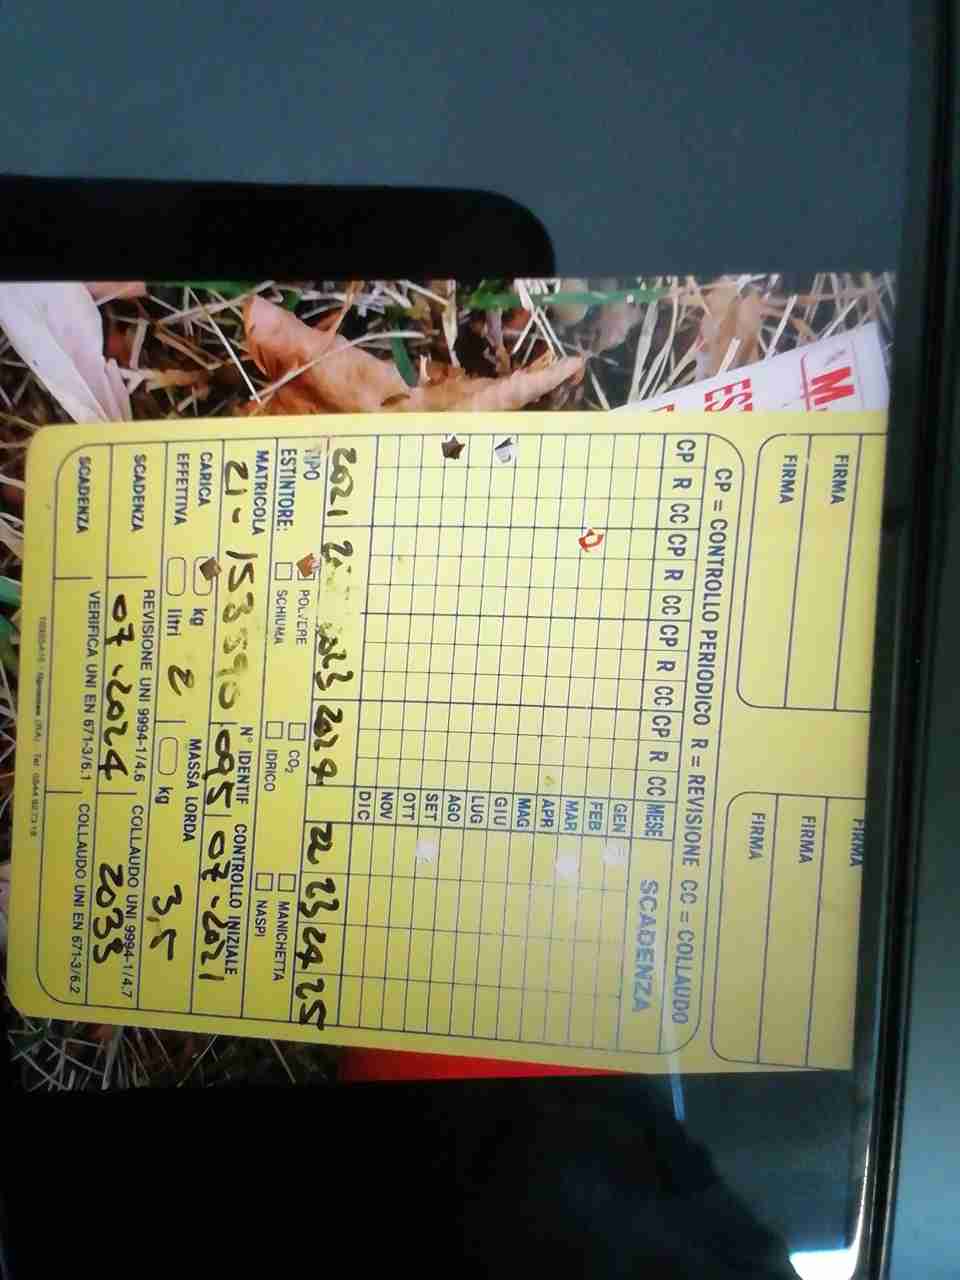 M
ES
FIRMA
FIRMA
FIRMA
FIRMA
FIRMA
CP = CONTROLLO PERIODICO R = REVISIONE CC = COLLAUDO
CP R CC CP R CC CP R CC CP R CC MESE SCADENZA
GEN
FEB
MAR
APR
MAG
GIU
LUG
AGO
SET
OTT
NOV
DIC
2021 2024 22 23 24 25
TIPO ESTINTORE: POLVERE CO2 MANICHETTA
SCHIUMA IDRICO NASPI
MATRICOLA N° IDENTIF CONTROLLO INIZIALE
095 07-2021
CARICA EFFETTIVA kg litri 2 MASSA LORDA kg 3,5
SCADENZA REVISIONE UNI 9994-1/4.6 COLLAUDO UNI 9994-1/4.7
07-2024 2033
SCADENZA VERIFICA UNI EN 671-3/6.1 COLLAUDO UNI EN 671-3/6.2